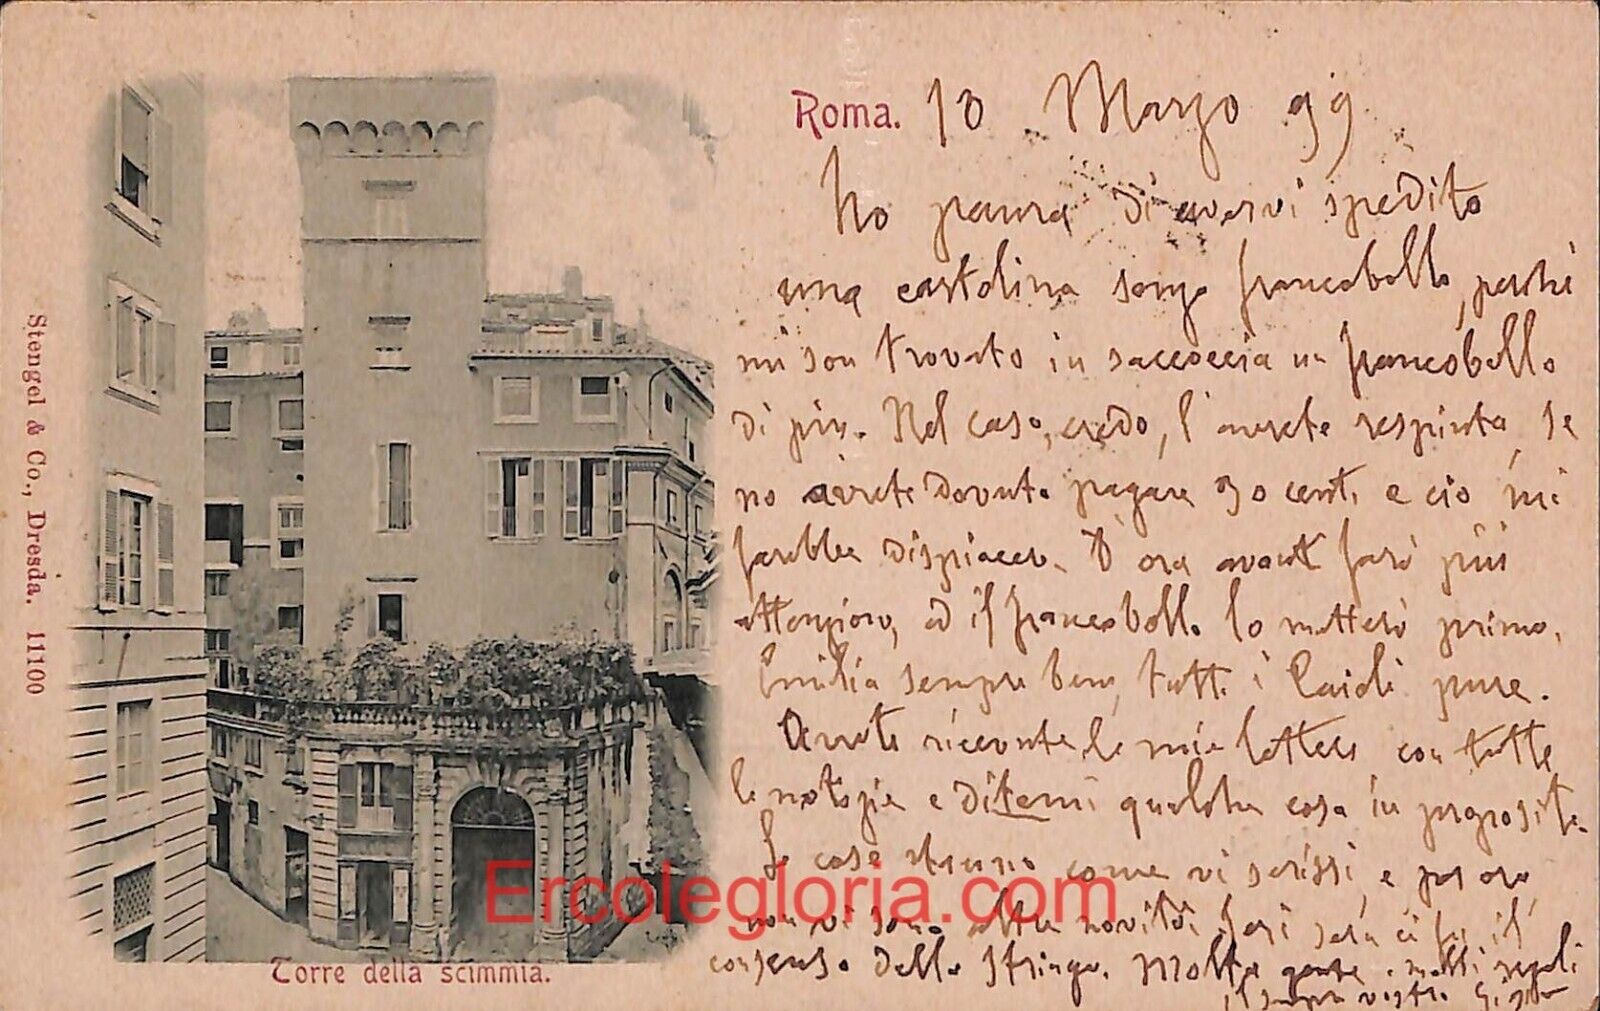 Roma. 10 Marzo 99
Ho paura di avervi spedito
una cartolina senza francobollo, perchè
mi son trovato in saccoccia un francobollo
di più. Nel caso, credo, l'avrete respinta, se
no avrete dovuto pagare 30 cent. e ciò mi
farebbe dispiacere. D'ora avanti farò più
attenzione, ed il francobollo lo metterò primo.
Emilia sempre bene, tutti i pure.
Avrete ricevuto le mie lettere con tutte
le notizie e ditemi qualche cosa in proposito.
Le cose stanno come vi scrissi, e per ora
non vi sono altre novità. Ieri sera ci fu il
consenso dello Molta gente e molti regali
il sempre vostro
Torre della scimmia.
Stengel & Co., Dresda. 11100
Ercolegloria.com